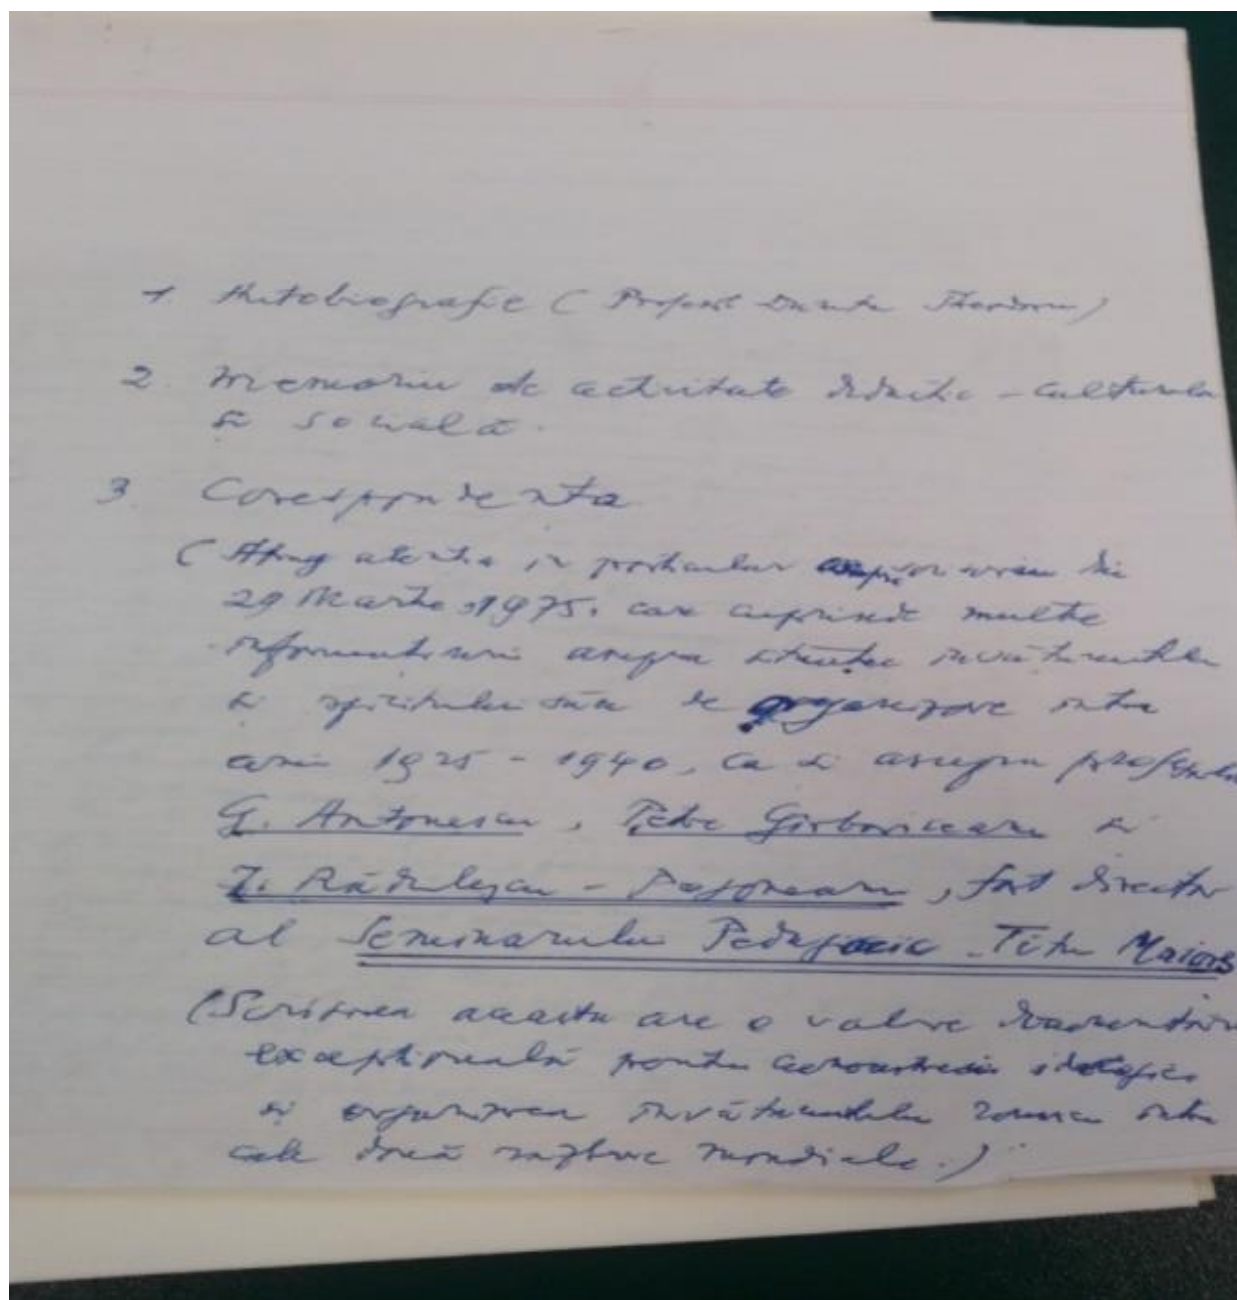 1 Autobiografie ( Profesor
2. Memoriu de activitate didactic - culturala
si sociala.
3 Corespondenta
( Atrag atentia in particular asupra scrisorii din
29 Martie 1975, care cuprinde multe
informatiuni asupra situatiei invatamantului
si spiritului sau de organizare intre
anii 1925 - 1940, ca si asupra
G. Antonescu, Petre Girboviceanu si
I. Rădulescu - Pogoneanu, fost director
al Seminarului Pedagogic Titu
(Scrisoarea aceasta are o valoare
exceptională pentru cunoasterea
si organizarea învătamantului intre
cele două războaie mondiale.)